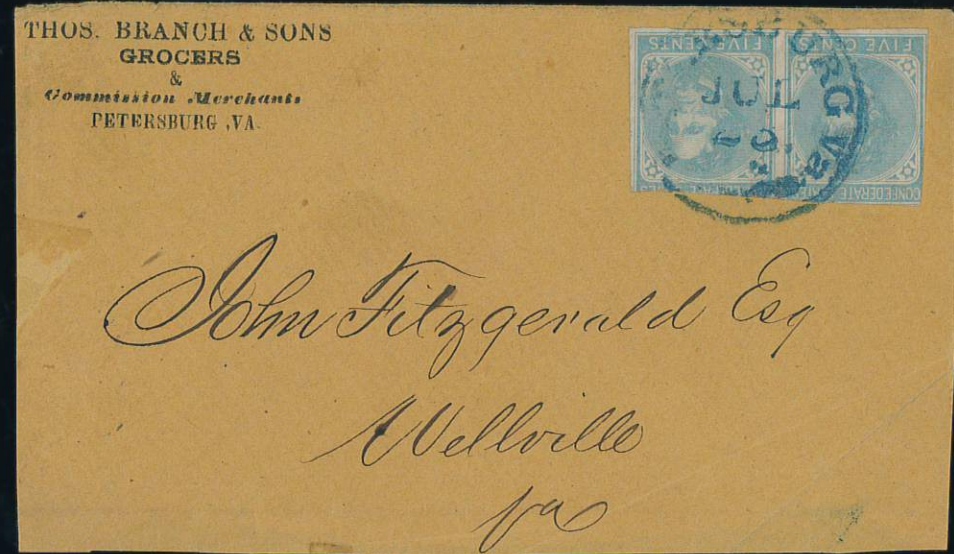 THOS. BRANCH & SONS
GROCERS
&
Commission Merchants
PETERSBURG, VA.
FIVE CENTS
FIVE CENTS
JUL
CONFEDERATE
John Fitzgerald Esq
Wellville
Va